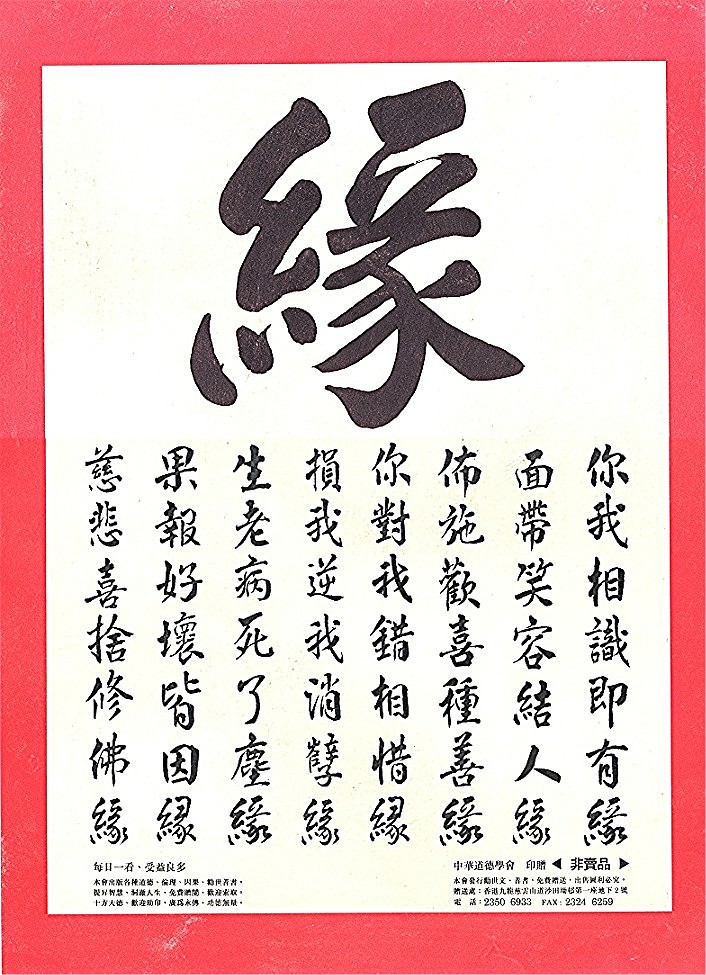 緣
你我相識即有緣
面帶笑容結人緣
佈施歡喜種善緣
你對我錯相惜緣
損我逆我消孽緣
生老病死了塵緣
果報好壞皆因緣
慈悲喜捨修佛緣
每日一看、受益良多
本會出版各種道德、倫理、因果、勸世善書,
提昇智慧、洞澈人生、免費贈閱、歡迎索取,
十方大德、歡迎助印、廣為永傳、功德無量。
中華道德學會 印贈 ◀ 非賣品 ▶
本會發行勸世文、善書,免費贈送,出售圖利必究。
贈送處:香港九龍慈雲山道沙田坳邨第一座地下2號
電 話:2350 6933 FAX:2324 6259